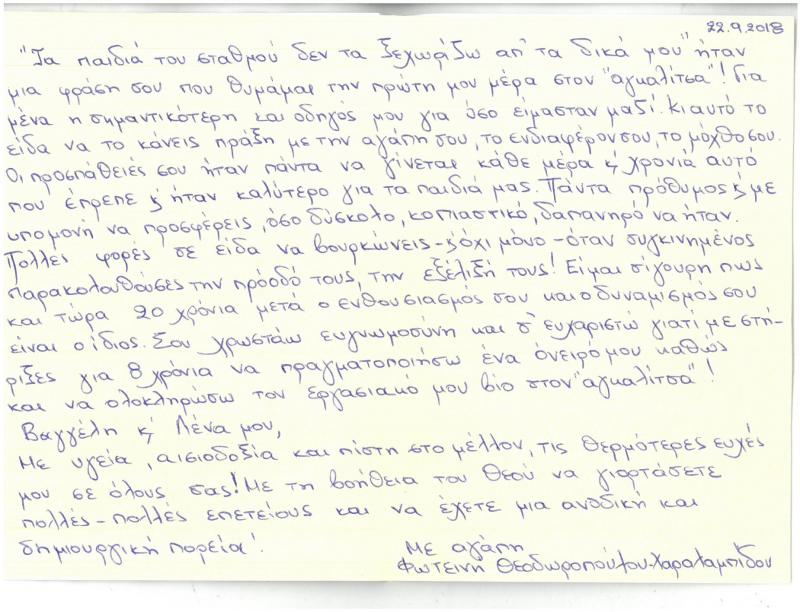 22.9.2018
"Τα παιδιά του σταθμού δεν τα ξεχωρίζω απ' τα δικά μου" ήταν
μια φράση σου που θυμάμαι την πρώτη μου μέρα στον "αγκαλίτσα"! Για
μένα η σημαντικότερη και οδηγός μου για όσο είμασταν μαζί. Κι αυτό το
είδα να το κάνεις πράξη με την αγάπη σου, το ενδιαφέρον σου, το μόχθο σου.
Οι προσπάθειές σου ήταν πάντα να γίνεται κάθε μέρα & χρονιά αυτό
που έπρεπε & ήταν καλύτερο για τα παιδιά μας. Πάντα πρόθυμος & με
υπομονή να προσφέρεις, όσο δύσκολο, κοπιαστικό, δαπανηρό να ήταν.
Πολλές φορές σε είδα να βουρκώνεις - & όχι μόνο - όταν συγκινημένος
παρακολουθούσες την πρόοδό τους, την εξέλιξή τους! Είμαι σίγουρη πως
και τώρα 20 χρόνια μετά ο ενθουσιασμός σου και ο δυναμισμός σου
είναι ο ίδιος. Σου χρωστάω ευγνωμοσύνη και σ' ευχαριστώ γιατί με στή-
ριξες για 8 χρόνια να πραγματοποιήσω ένα όνειρο μου καθώς
και να ολοκληρώσω τον εργασιακό μου βίο στον "αγκαλίτσα"!
Βαγγέλη & Λένα μου,
Με υγεία, αισιοδοξία και πίστη στο μέλλον, τις θερμότερες ευχές
μου σε όλους σας! Με τη βοήθεια του Θεού να γιορτάσετε
πολλές - πολλές επετείους και να έχετε μια ανοδική και
δημιουργική πορεία!
Με αγάπη
Φωτεινή Θεοδωροπούλου-Χαραλαμπίδου